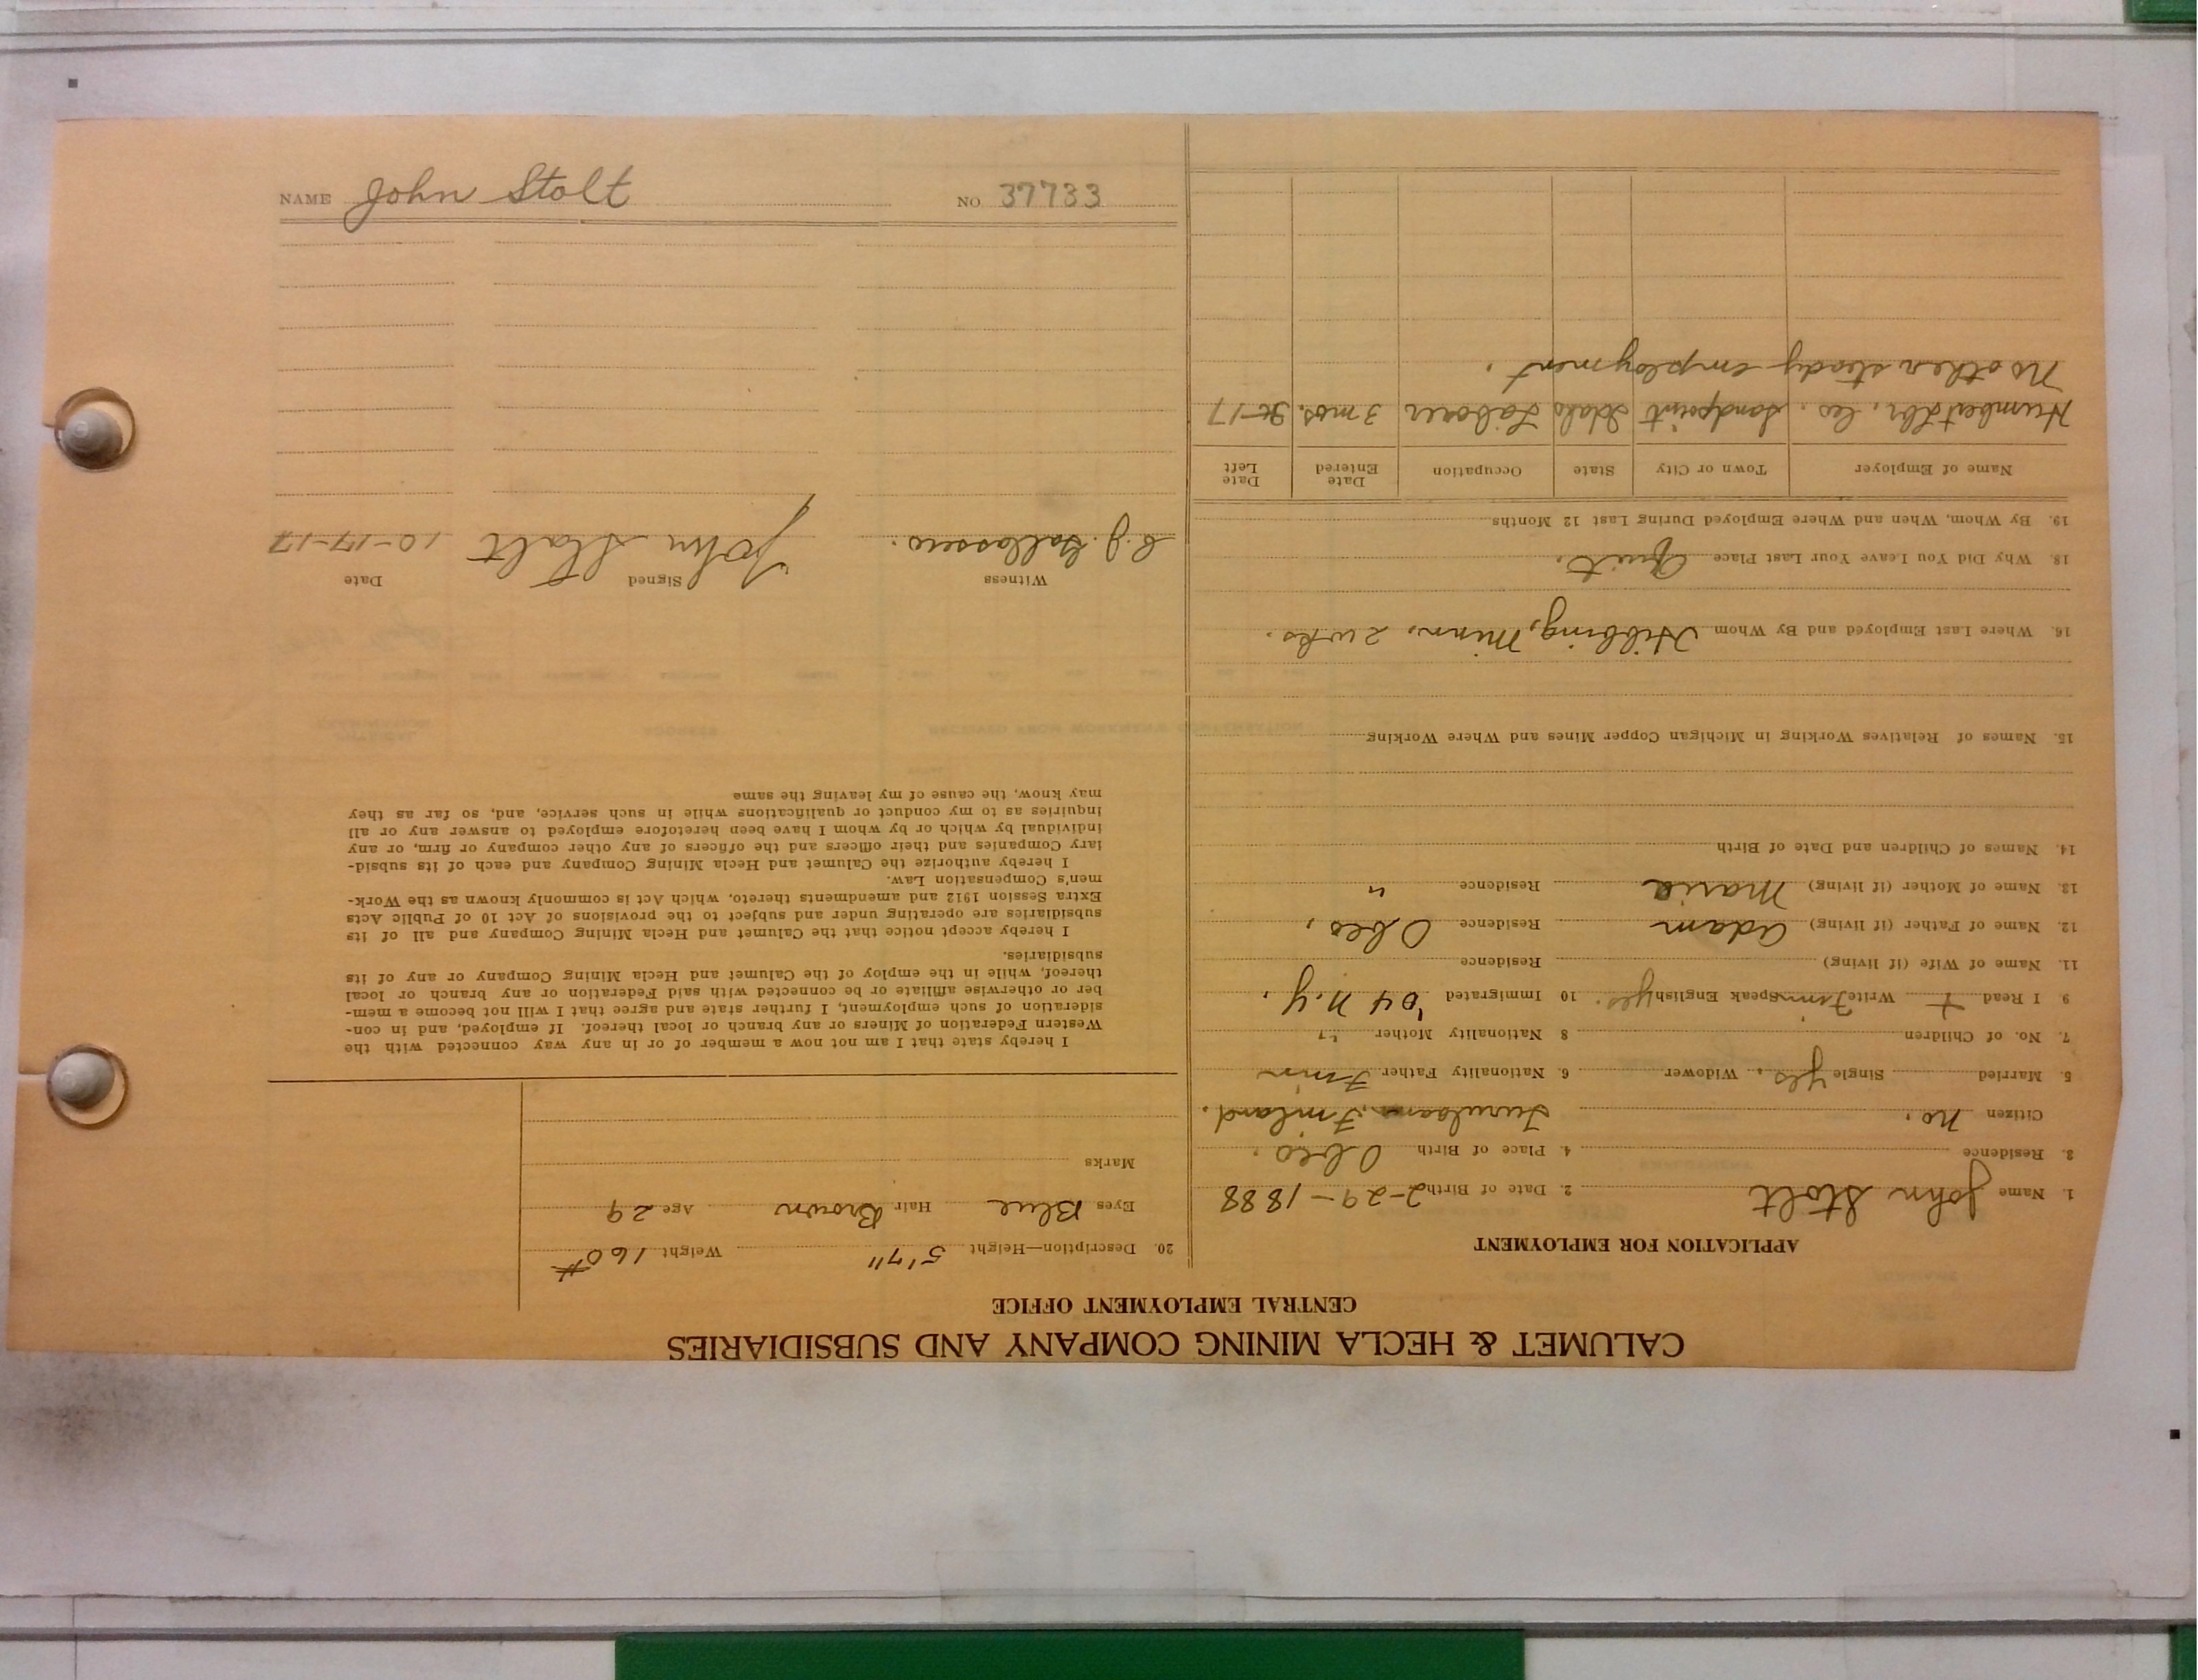 CALUMET & HECLA MINING COMPANY AND SUBSIDIARIES
CENTRAL EMPLOYMENT OFFICE
APPLICATION FOR EMPLOYMENT
1. Name John Stolt 2. Date of Birth 2-29-1888
3. Residence 4. Place of Birth Obco.
Citizen no. Finland.
5. Married Single yes. Widower 6. Nationality Father Finn
7. No. of Children 8 Nationality Mother "
9 I Read + Write Finn Speak English yes. 10 Immigrated '04 N.Y.
11. Name of Wife (if living) Residence
12. Name of Father (if living) Adam Residence Obco,
13. Name of Mother (if living) Maria Residence "
14. Names of Children and Date of Birth
15. Names of Relatives Working in Michigan Copper Mines and Where Working
16. Where Last Employed and By Whom Hibbing, Minn, 2 wks.
18. Why Did You Leave Your Last Place Quit.
19. By Whom, When and Where Employed During Last 12 Months
Name of Employer Town or City State Occupation Date Entered Date Left
Humbert Lbr. Co. Sandpoint Idaho Laborer 3 mos. -17
No other steady employment.
20. Description—Height 5'7" Weight 160#
Eyes Blue Hair Brown Age 29
Marks
I hereby state that I am not now a member of or in any way connected with the
Western Federation of Miners or any branch or local thereof. If employed, and in con-
sideration of such employment, I further state and agree that I will not become a mem-
ber or otherwise affiliate or be connected with said Federation or any branch or local
thereof, while in the employ of the Calumet and Hecla Mining Company or any of its
subsidiaries.
I hereby accept notice that the Calumet and Hecla Mining Company and all of its
subsidiaries are operating under and subject to the provisions of Act 10 of Public Acts
Extra Session 1912 and amendments thereto, which Act is commonly known as the Work-
men's Compensation Law.
I hereby authorize the Calumet and Hecla Mining Company and each of its subsid-
iary Companies and their officers and the officers of any other company or firm, or any
individual by which or by whom I have been heretofore employed to answer any or all
inquiries as to my conduct or qualifications while in such service, and, so far as they
may know, the cause of my leaving the same
Witness Signed Date
John Stalt 10-17-17
NAME John Stolt NO. 37733